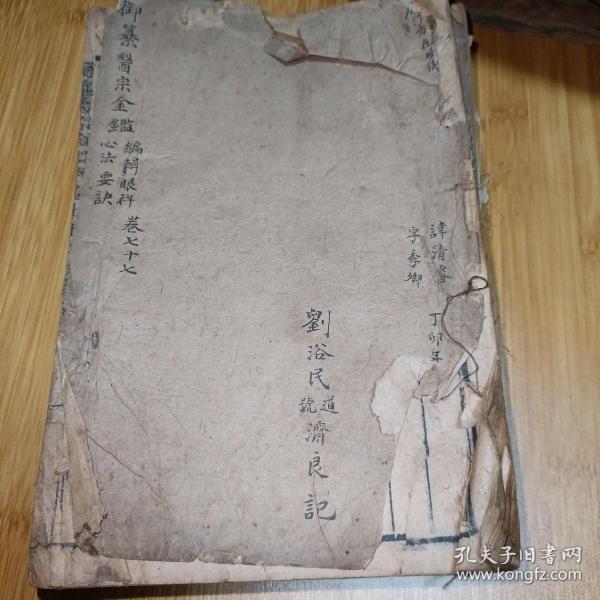 御纂醫宗金鑑
編輯眼科
心法要訣
卷七十七
諱清睿
字季卿
丁卯年
劉浴民
道號
濟良記
孔夫子旧书网
www.kongfz.com